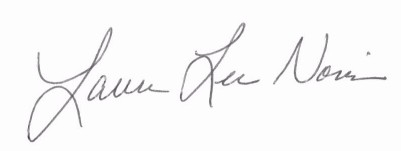 Laura Lee Norris